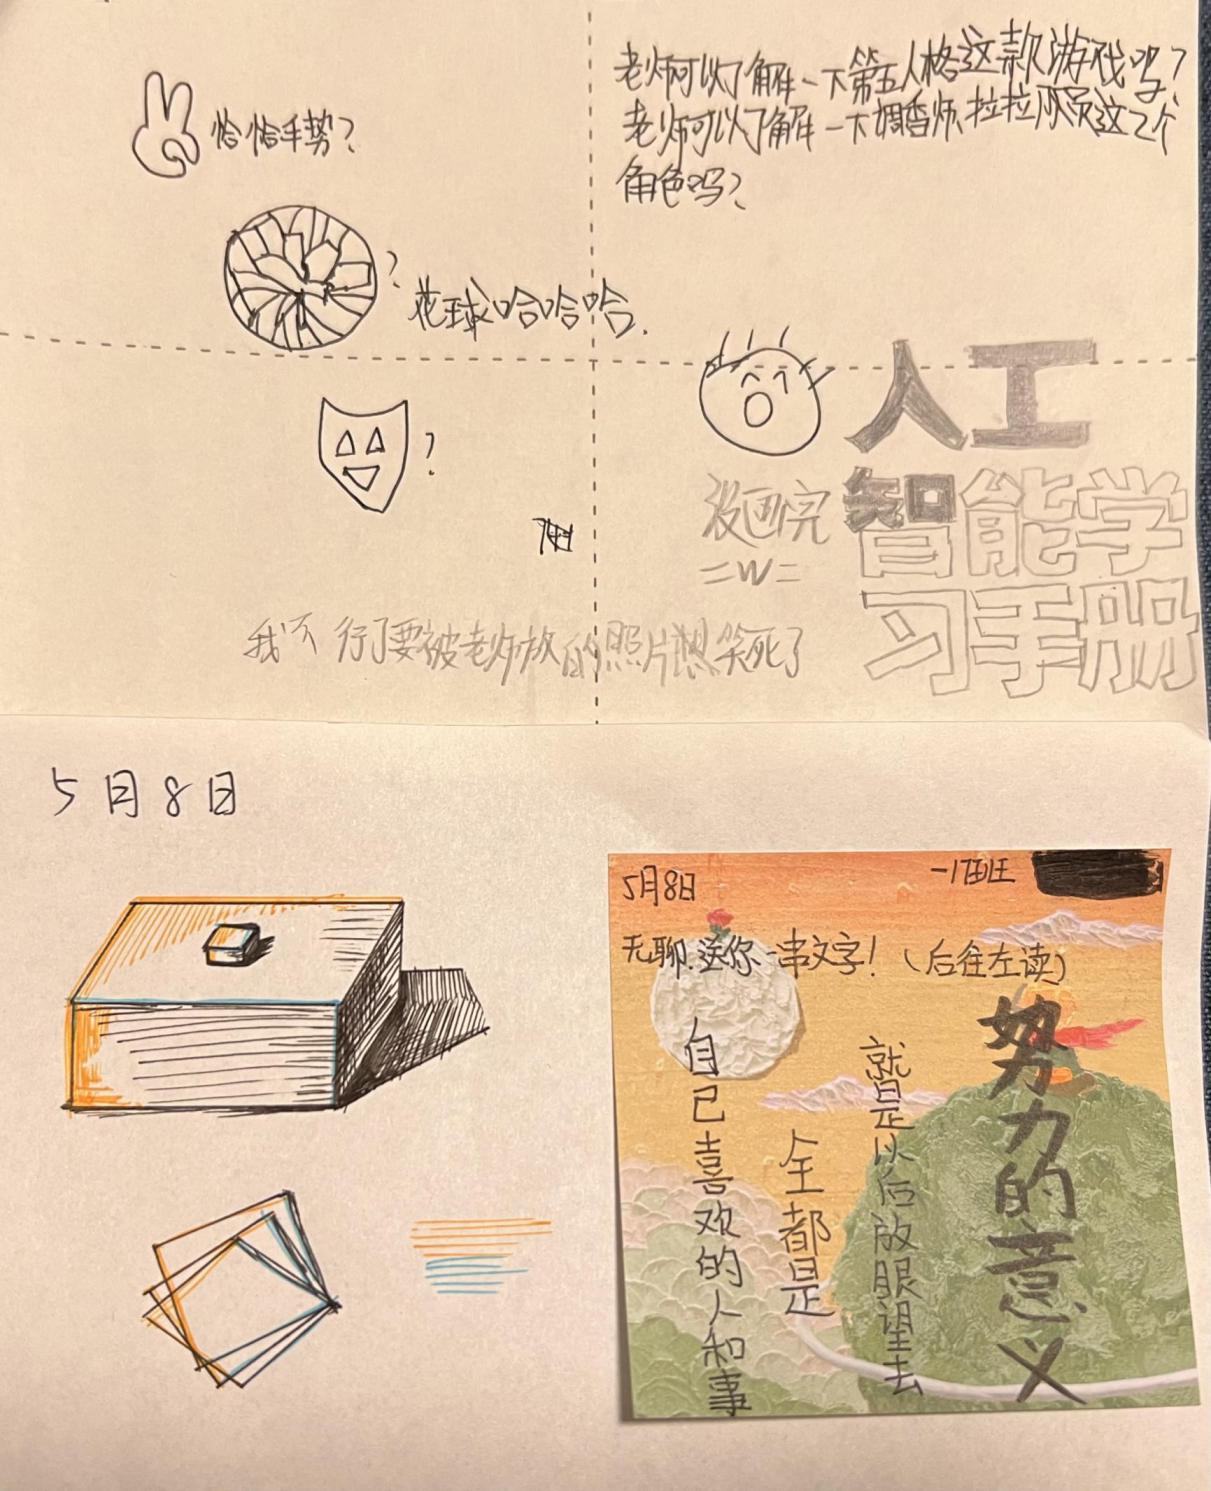 恰恰手势?
? 花球哈哈哈.
?
老师可以了解一下第五人格这款游戏吗?
老师可以了解一下调香师、拉拉队员这2个
角色吗?
人工
智能学
习手册
没画完
=W=
我不行了要被老师放的照片 笑死了
5月8日
5月8日
无聊.送你一串文字!(后往左读)
努力的意义
就是以后放眼望去
全都是
自己喜欢的人和事